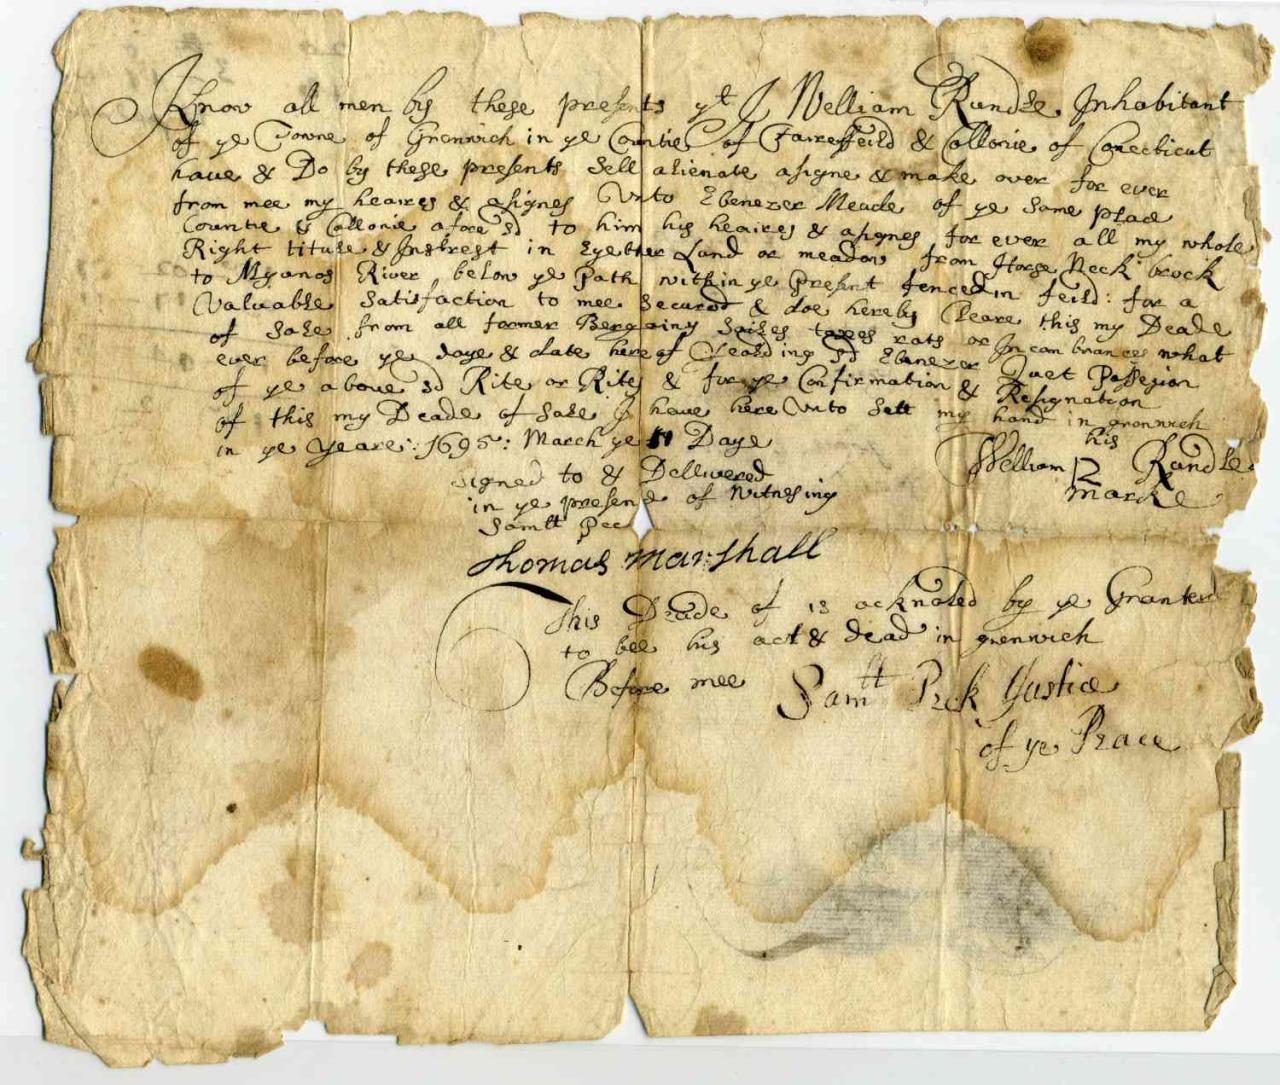 Know all men by these presents yt I William Rundle Inhabitant
of ye Towne of Grenwich in ye Countie of Fairefeild & Collonie of Conecticut
have & Do by these presents sell alienate asigne & make over for ever
from mee my heaires & asignes Unto Ebenezer Meade of ye same place
Countie & Collonie afore sd to him his heaires & asignes for ever all my whole
Right titule & Instrest in Eyether Land or meadow from Horse Neck brock
to Myanos River below ye Path within ye Present fenced in feild: for a
Valuable satisfaction to mee secured & doe hereby Cleare this my Deade
of sale from all former Bergainy sailes taxes rats or Incombrances what
ever before ye daye & date hereof Yealding sd Ebenezer Quet Possesion
of ye above sd Rite or Rites & for ye Confirmation & Resignation
of this my Deade of sale I have here Unto sett my hand in grenwich
in ye yeare: 1695: March ye 11 Daye
his
signed to & Dellivered
William R Rundle
in ye presence of Witnesing
marke
Samll Pec
Thomas Marshall
This Deade of is acknoled by ye Granter
to bee his act & dead in grenwich
Before mee Samll Peck Justice
of ye Peace